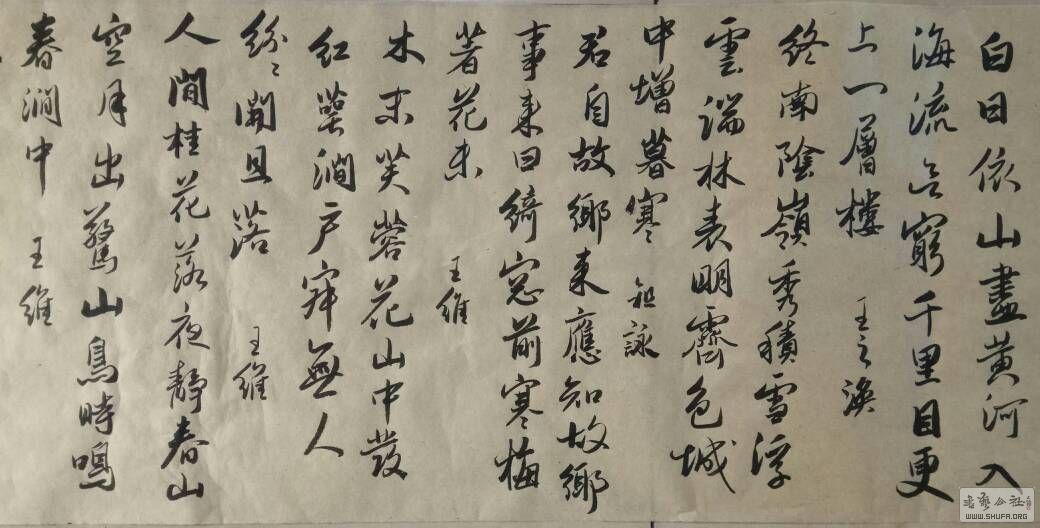 白日依山盡黃河入
海流欲窮千里目更
上一層樓 王之渙
終南陰嶺秀積雪浮
雲端林表明霽色城
中增暮寒 祖詠
君自故鄉來應知故鄉
事來日綺窓前寒梅
著花未 王維
木末芙蓉花山中發
紅萼澗戶寂無人
紛〻開且落 王維
人閒桂花落夜靜春山
空月出驚山鳥時鳴
春澗中 王維
書藝公社
WWW.SHUFA.ORG